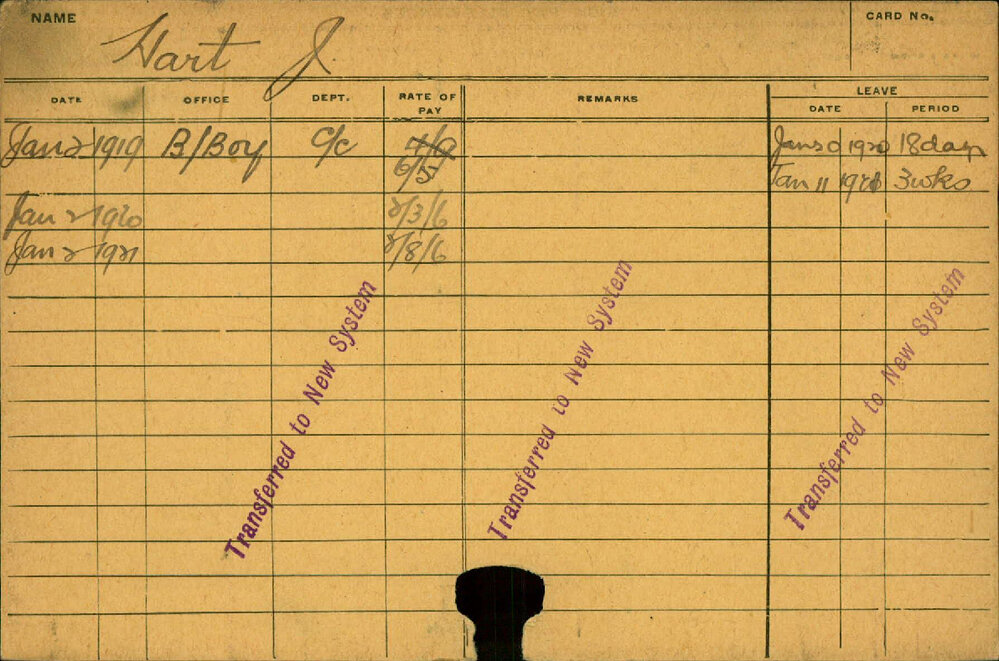 NAME Hart J. CARD No.
DATE OFFICE DEPT. RATE OF PAY REMARKS LEAVE DATE PERIOD
Jan 2 1919 B/Boy C/C Jan 20 1920 18 days
6/5 Jan 11 1921 3 wks
Jan 2 1920 2/3/6
Jan 2 1921 2/8/6
Transferred to New System
Transferred to New System
Transferred to New System